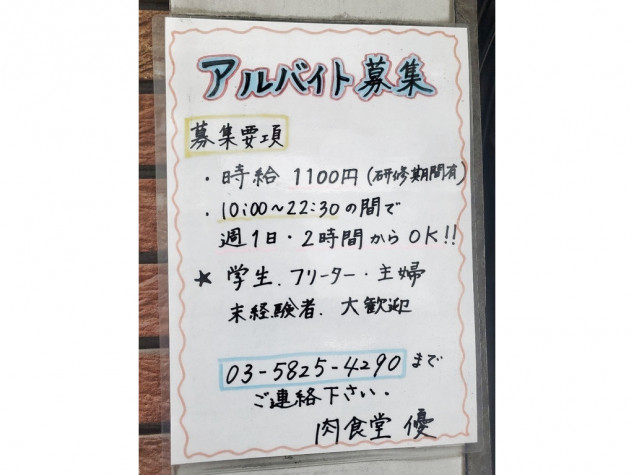 アルバイト募集
募集要項
・時給 1100円(研修期間有)
・10:00~22:30の間で
週1日・2時間からOK!!
★学生.フリーター・主婦
未経験者. 大歓迎
03-5825-4290まで
ご連絡下さい.
肉食堂 優